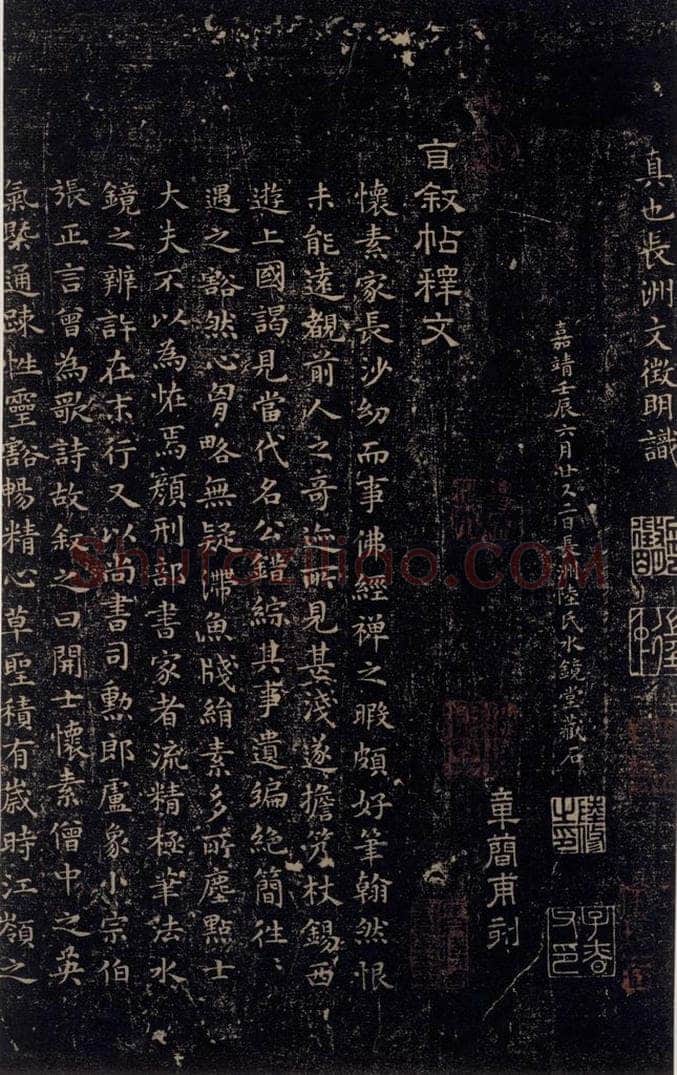 真也長洲文徵明識
嘉靖壬辰六月廿又二日長洲陸氏水鏡堂藏石
章簡甫刻
自叙帖釋文
懷素家長沙幼而事佛經禅之暇頗好筆翰然恨
未能遠覩前人之奇迹所見甚淺遂擔笈杖錫西
遊上國謁見當代名公錯綜其事遺編絶簡往〻
遇之豁然心胷略無疑滯魚牋絹素多所塵點士
大夫不以為恠焉顔刑部書家者流精極筆法水
鏡之辨許在末行又以尚書司勲郎盧象小宗伯
張正言曾為歌詩故叙之曰開士懷素僧中之英
氣槩通疎性靈豁暢精心草聖積有歲時江嶺之
Shufaziliao.com